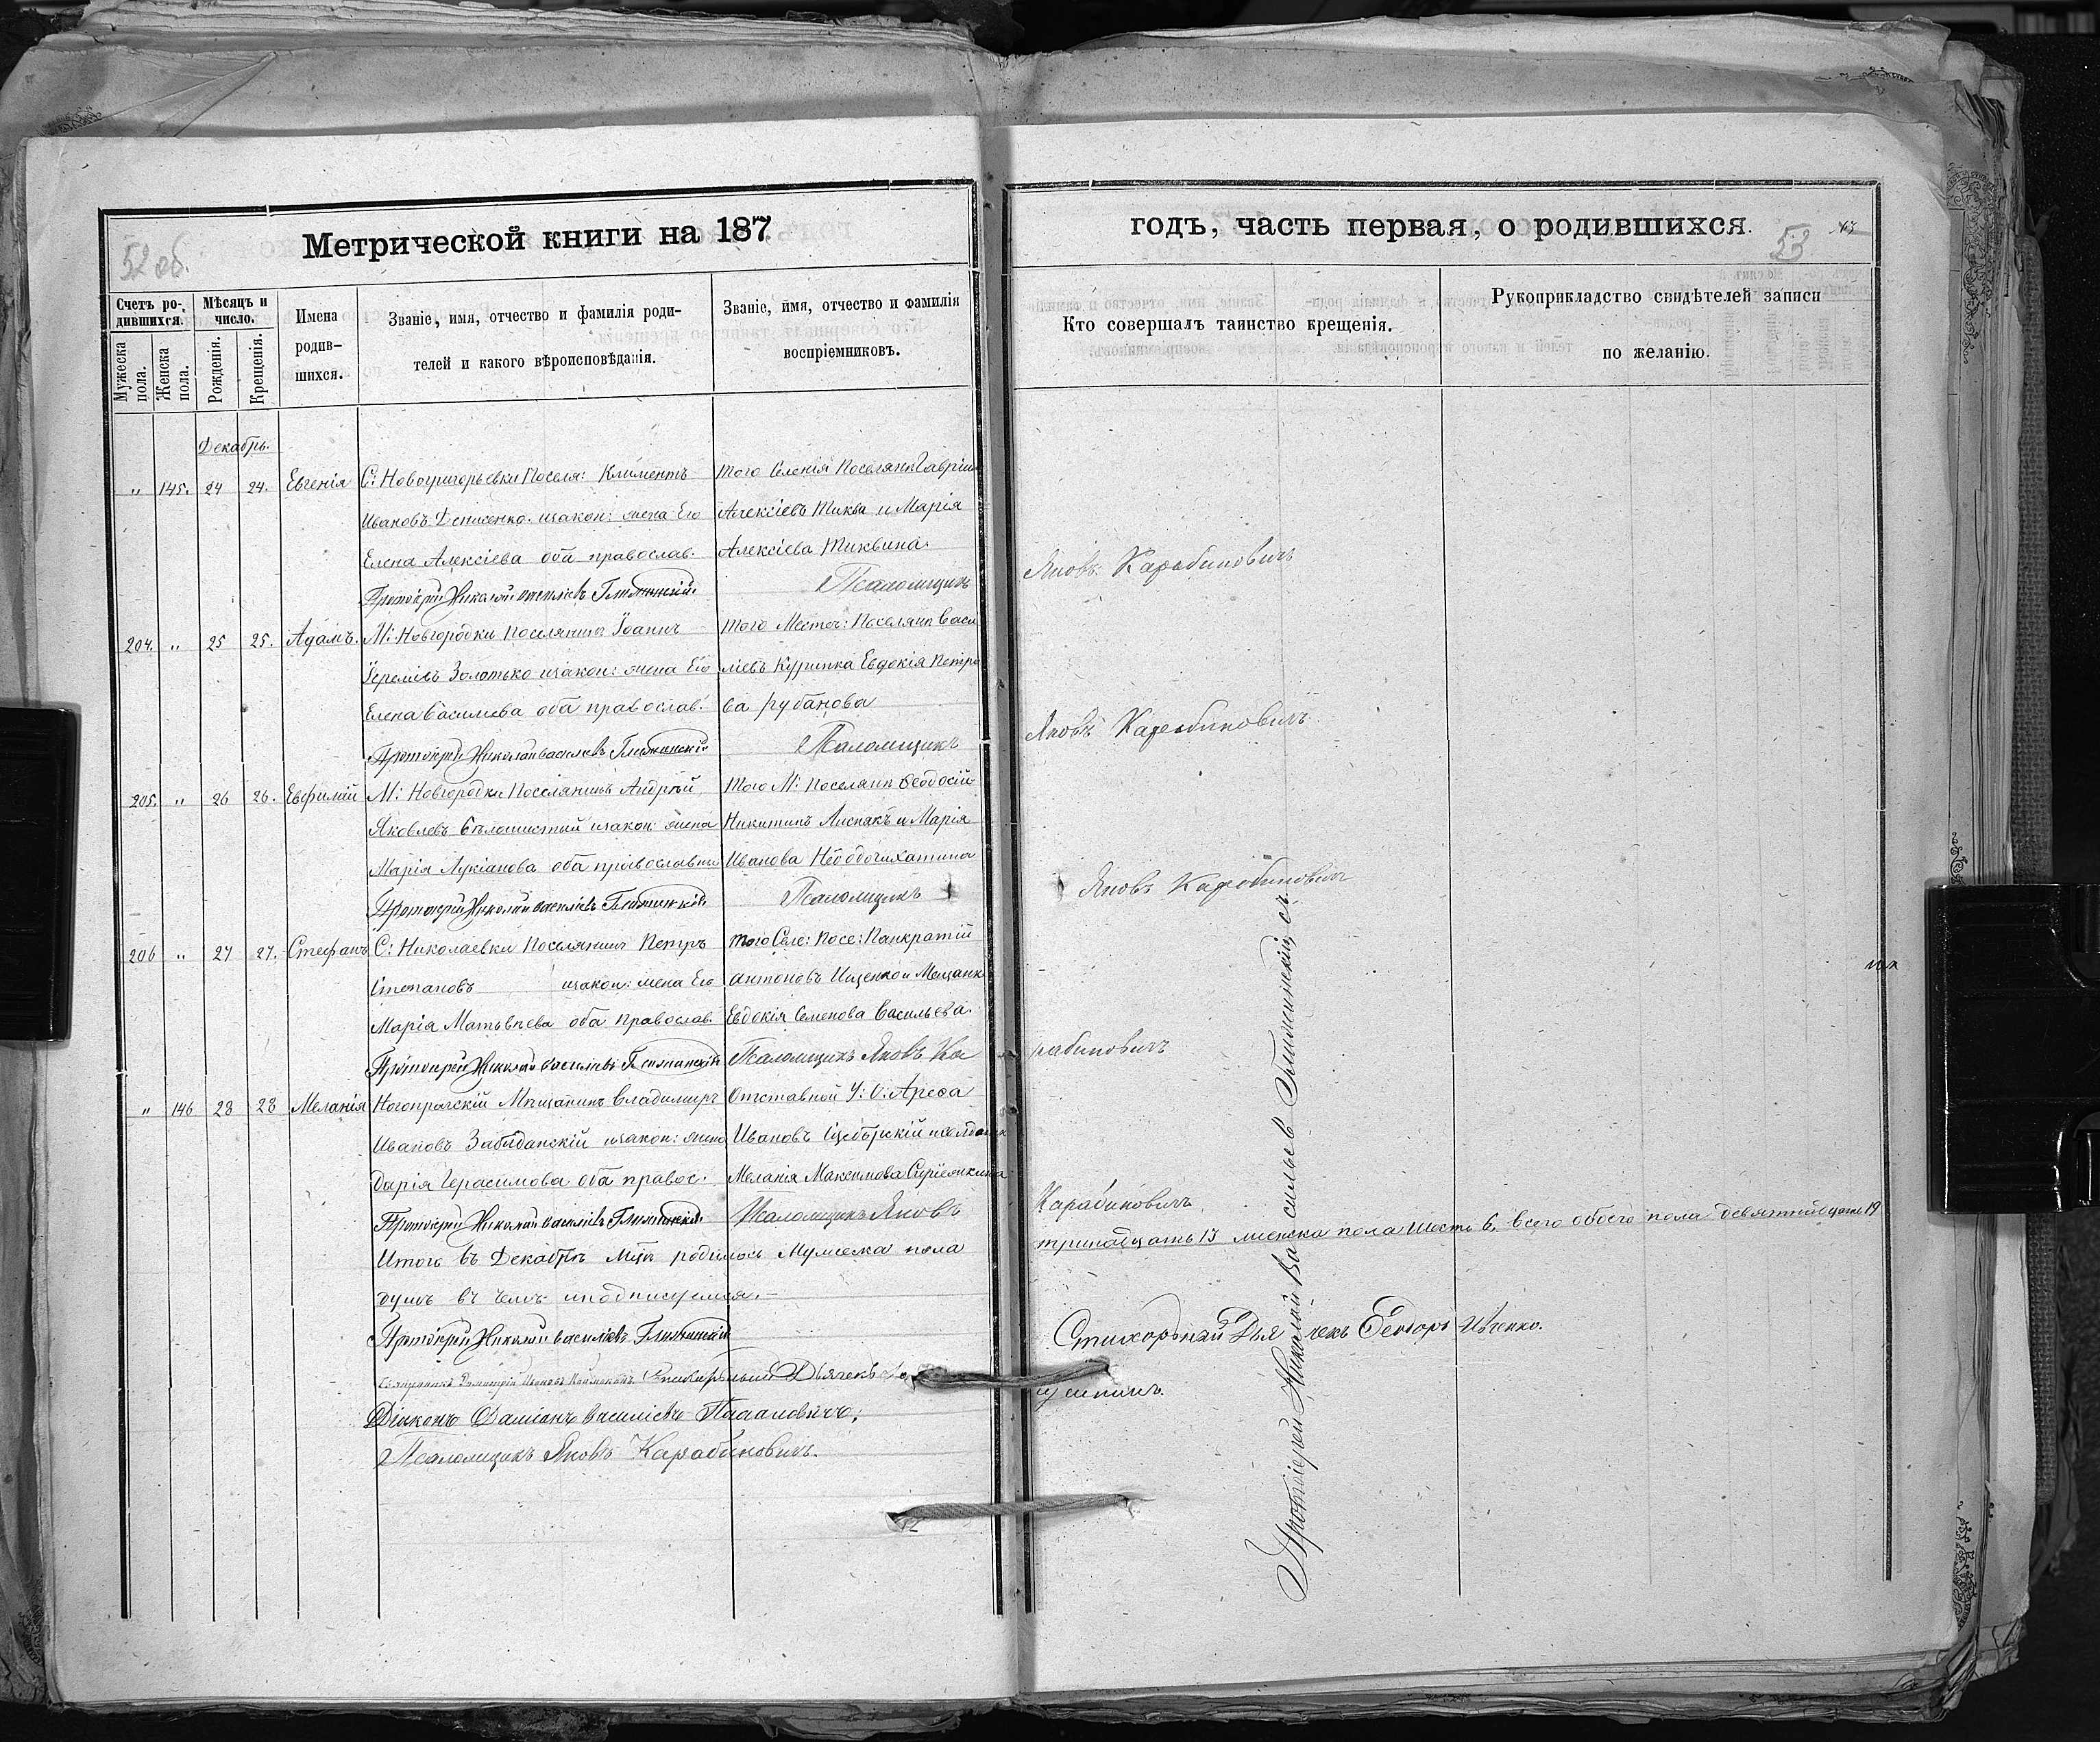 Метрической книги на 187
52 об.
Счетъ ро-
дившихся.
Мѣсяцъ и
число.
Имена
родив-
шихся.
Званіе, имя, отчество и фамилія роди-
телей и какого вѣроисповѣданія.
Званіе, имя, отчество и фамилія
воспріемниковъ.
Мужеска
пола.
Женска
пола.
Рожденія.
Крещенія.
Декабрь.
" 145. 24 24. Евгенія С: Новогригорьевки Поселя: Климентъ
Ивановъ Денисенко. изакон: жена Его
Елена Алексіева оба православ.
Протоіерей Николай Василіевъ
того Селенія Поселянъ Гавріилъ
Алексіевъ Тиква и Марія
Алексіева Тиквина.
Псаломщикъ
204. " 25 25. Адамъ. М: Новгородки поселянинъ Іоаннъ
Іереміевъ Золотько изакон: жена Его
Елена Василиева оба православ:
Протоіерей Николай Василіевъ
того Местеч: Поселянъ Васи
ліевъ Евдокія Петро
ва рубанова
Псаломщикъ
205. " 26 26. Евфимій М: Новгородки Поселянинъ Андрей
Яковлевъ изакон: жена
Марія Лукіанова оба православни
Протоіерей Николай Василіевъ
того М: поселянъ Ѳеодосій
Никитинъ Лиспакъ и Марія
Иванова
Псаломщикъ
206 " 27 27. Стефанъ С: Николаевки Поселянинъ Петръ
Степановъ изакон: жена Его
Марія Матьвѣева оба православ.
Протоіерей Николай Василіевъ
того Селе: Посе: Панкратій
Антоновъ Ищенко и Мещанк
Евдокія Семенова Васильева.
Псаломщикъ Яковъ Ка
" 146 28 28 Меланія Мѣщанинъ Владимиръ
Ивановъ изакон: жена
Дарія Герасимова оба правос.
Протоіерей Николай Василіевъ
Отставной У: О: Арефа
Ивановъ
Меланія Максимова
Псаломщикъ Яковъ
Итого въ Декабрѣ Мцѣ родилось Мужеска пола
душъ въ чемъ иподписуемся.
Протоіерей Николай Василіевъ
Стихарный Дьячекъ
Діаконъ Даміанъ Василіевъ
Псаломщикъ Яковъ Карабиновичъ.
годъ, часть первая, о родившихся.
53
Кто совершалъ таинство крещенія.
Рукоприкладство свидѣтелей записи
по желанію.
Яковъ Карабиновичъ
Яковъ Карабиновичъ
Яковъ Карабиновичъ
рабиновичъ
Карабиновичъ
тринадцать 13 женска пола шесть 6. всего обоего пола девятнадцать 19
Стихарный Дьячекъ Ѳеодоръ Ивченко.
Протоіерей Николай Васильевъ